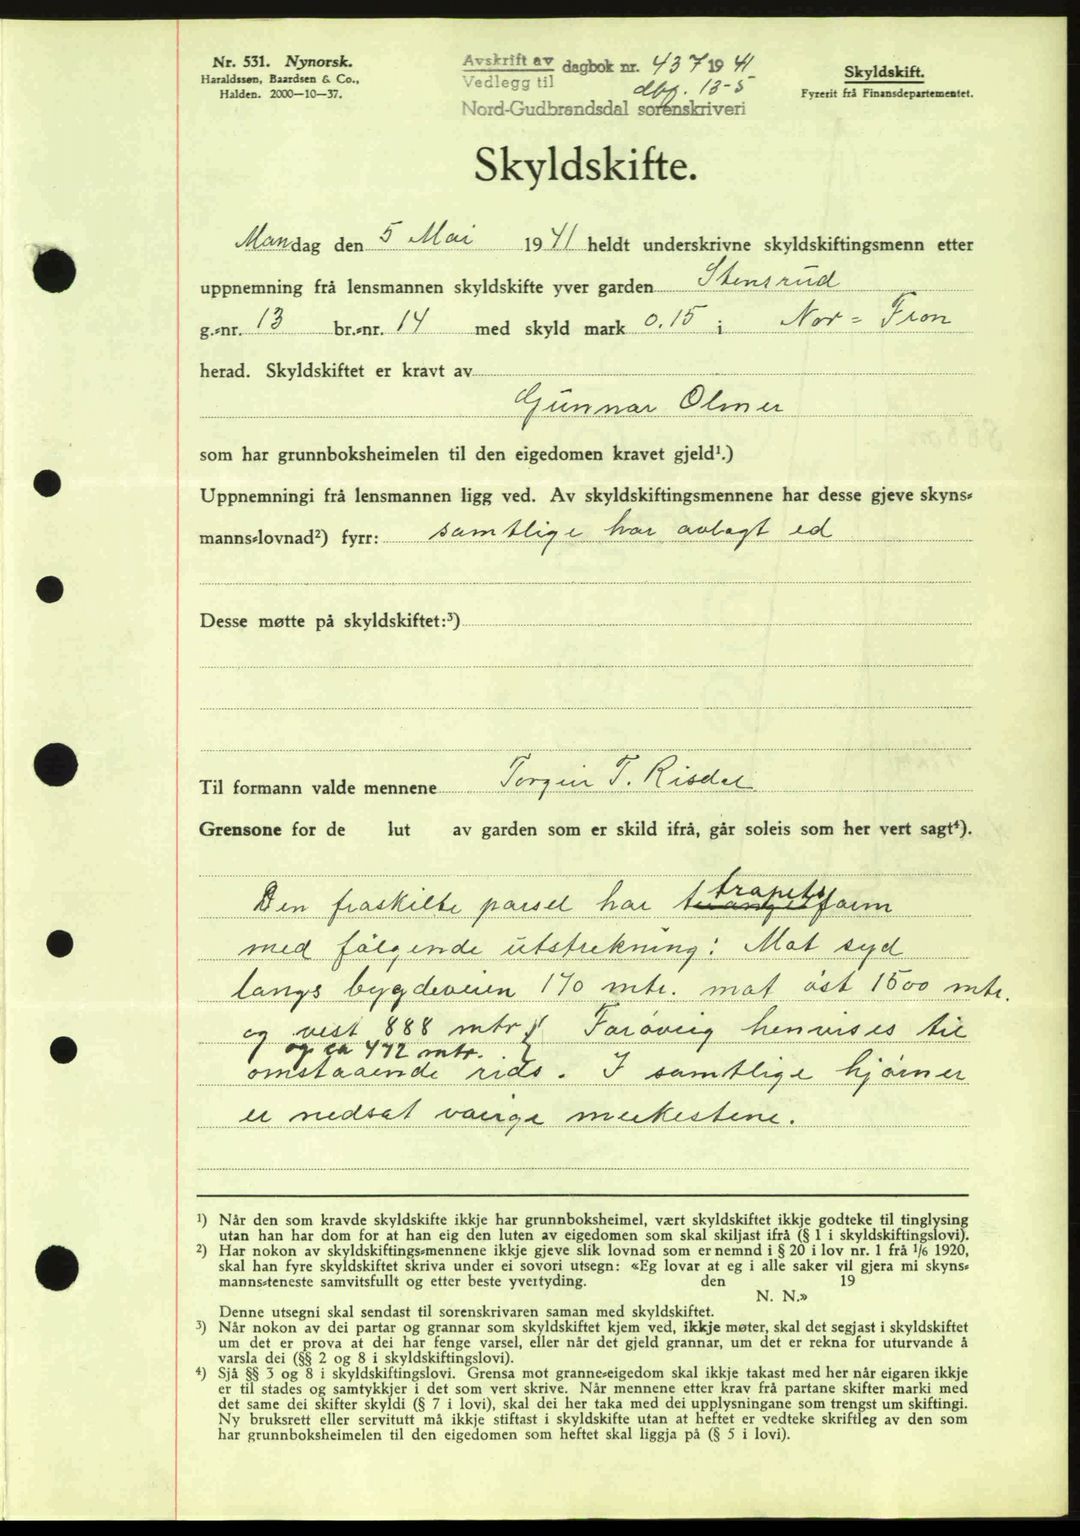 Nr. 531. Nynorsk.
Haraldssen, Baardsen & Co.,
Halden. 2000—10—37.
Avskrift av dagbok nr. 437 1941
Vedlegg til dbf. 13-5
Nord-Gudbrandsdal sorenskriveri
Skyldskift.
Fyrerit frå Finansdepartementet.
Skyldskifte.
Mandag den 5 Mai 1941 heldt underskrivne skyldskiftingsmenn etter
uppnemning frå lensmannen skyldskifte yver garden Stensrud
g.-nr. 13 br.-nr. 14 med skyld mark 0.15 i Nor = Fron
herad. Skyldskiftet er kravt av
Gunnar Olmer
som har grunnboksheimelen til den eigedomen kravet gjeld¹.)
Uppnemningi frå lensmannen ligg ved. Av skyldskiftingsmennene har desse gjeve skyns-
manns-lovnad²) fyrr: samtlige har avlagt ed
Desse møtte på skyldskiftet:³)
Til formann valde mennene Torgeir T. Risdal
Grensone for de lut av garden som er skild ifrå, går soleis som her vert sagt⁴).
Den fraskilte parsel har trapetsform
med følgende utstrekning: Mot syd
langs bygdeveien 170 mtr. mot øst 1500 mtr.
og vest 888 mtr. Forøvrig henvises til
og ca 472 mtr.
omstaaende rids. I samtlige hjørner
er nedsat varige merkestene.
¹) Når den som kravde skyldskifte ikkje har grunnboksheimel, vært skyldskiftet ikkje godteke til tinglysing
utan han har dom for at han eig den luten av eigedomen som skal skiljast ifrå (§ 1 i skyldskiftingslovi).
²) Har nokon av skyldskiftings-mennene ikkje gjeve slik lovnad som er nemnd i § 20 i lov nr. 1 frå ¹/₆ 1920,
skal han fyre skyldskiftet skriva under ei sovori utsegn: «Eg lovar at eg i alle saker vil gjera mi skyns-
manns-teneste samvitsfullt og etter beste yvertyding. den 19
N. N.»
Denne utsegni skal sendast til sorenskrivaren saman med skyldskiftet.
³) Når nokon av dei partar og grannar som skyldskiftet kjem ved, ikkje møter, skal det segjast i skyldskiftet
um det er prova at dei har fenge varsel, eller når det gjeld grannar, um det er rekna for uturvande å
varsla dei (§§ 2 og 8 i skyldskiftingslovi).
⁴) Sjå §§ 3 og 8 i skyldskiftingslovi. Grensa mot granne-eigedom skal ikkje takast med her når eigaren ikkje
er til stades og samtykkjer i det som vert skrive. Når mennene etter krav frå partane skifter marki med
det same dei skifter skyldi (§ 7 i lovi), skal dei her taka med dei upplysningane som trengst um skiftingi.
Ny bruksrett eller servitutt må ikkje stiftast i skyldskifte utan at heftet er vedteke skriftleg av den som
har grunnboksheimelen til den eigedomen som heftet skal liggja på (§ 5 i lovi).